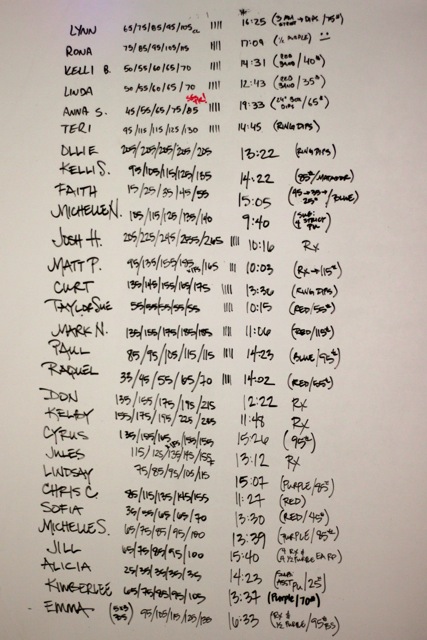 LYNN 65/75/85/95/105 |||| 16:25
RONA 75/85/95/105/115 17:09 (½ PURPLE)
KELLI B. 50/55/60/65/70 |||| 14:31 (RED BAND/40#)
LINDA 50/55/60/65/70 |||| 12:43 (RED BAND/35#)
ANNA S. 45/55/65/75/85 |||| 19:33 (24" BOX DIPS/65#)
TERI 95/115/115/125/130 |||| 14:45 (RING DIPS)
OLLIE 205/205/205/205/205 13:22 (RING DIPS)
KELLI S. 95/105/115/125/135 14:22
FAITH 15/25/35/45/55 15:05
MICHELLE N. 105/115/125/135/140 9:40
JOSH H. 205/225/245/255/265 |||| 10:16 RX
MATT P. 95/135/155/185/165 ||| 10:03 (RX→115#)
CURT 135/145/155/165/175 |||| 13:36 (RING DIPS)
TAYLOR SUE 55/55/55/55/55 |||| 10:15 (RED/55#)
MARK N. 135/155/175/185/185 |||| 11:06 (RED/115#)
PAUL 85/95/105/115/115 |||| 14:23 (BLUE/95#)
RAQUEL 33/45/55/65/70 |||| 14:02 (RED/55#)
DON 135/155/175/195/215 12:22 RX
KELBY 155/175/195/225/205 11:48 RX
CYRUS 135/155/165/155/155 15:26 (95#)
JULES 115/125/135/145/155 13:12 RX
LINDSAY 75/85/95/105/115 15:07 (PURPLE/85#)
CHRIS C. 85/115/135/145/155 11:27 (RED)
SOFIA 35/55/65/65/70 13:30 (RED/45#)
MICHELLE S. 65/75/85/95/100 13:39 (PURPLE/85#)
JILL 65/75/85/95/100 15:40
ALICIA 25/35/35/35/35 14:23
KIMBERLEE 65/75/85/95/105 13:37 (PURPLE/70#)
EMMA 95/105/115/125/135 16:33